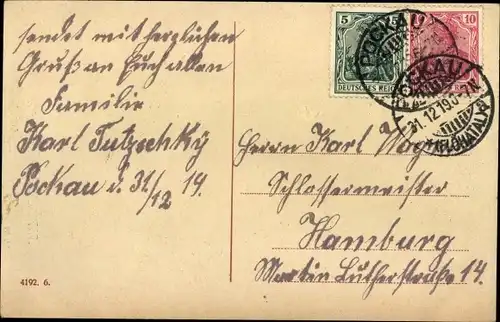 sendet mit herzlichen
Gruß an Euch allen
Familie
Karl Tutzschky
Pockau d. 31/12 19.
4192. 6.
5
DEUTSCHES REICH
10
POCKAU
POCKAU
31.12.19
(FLÖHATAL)
Herrn Karl
Schlossermeister
Hamburg
Martin Lutherstraße 14.